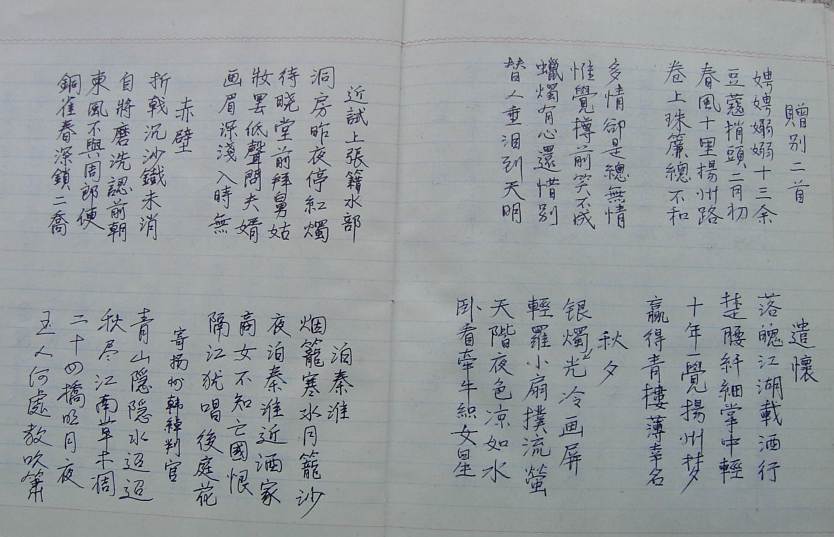 贈别二首
娉娉嫋嫋十三余
豆蔻捎頭二月初
春風十里揚州路
卷上珠簾總不和
多情卻是總無情
惟覺樽前笑不成
蠟燭有心還惜别
替人垂泪到天明
遣懷
落魄江湖載酒行
楚腰纤細掌中輕
十年一覺揚州梦
贏得青樓薄幸名
秋夕
银燭光冷画屏
輕羅小扇撲流螢
天階夜色凉如水
卧看牵牛織女星
近試上張籍水部
洞房昨夜停紅燭
待晓堂前拜舅姑
妝罢低聲問夫婿
画眉深淺入時無
赤壁
折戟沉沙鐵未消
自將磨洗認前朝
東風不與周郎便
銅雀春深鎖二喬
泊秦淮
烟籠寒水月籠沙
夜泊秦淮近酒家
商女不知亡國恨
隔江犹唱後庭花
寄揚州韩綽判官
青山隠隠水迢迢
秋尽江南草木凋
二十四橋明月夜
玉人何處教吹簫